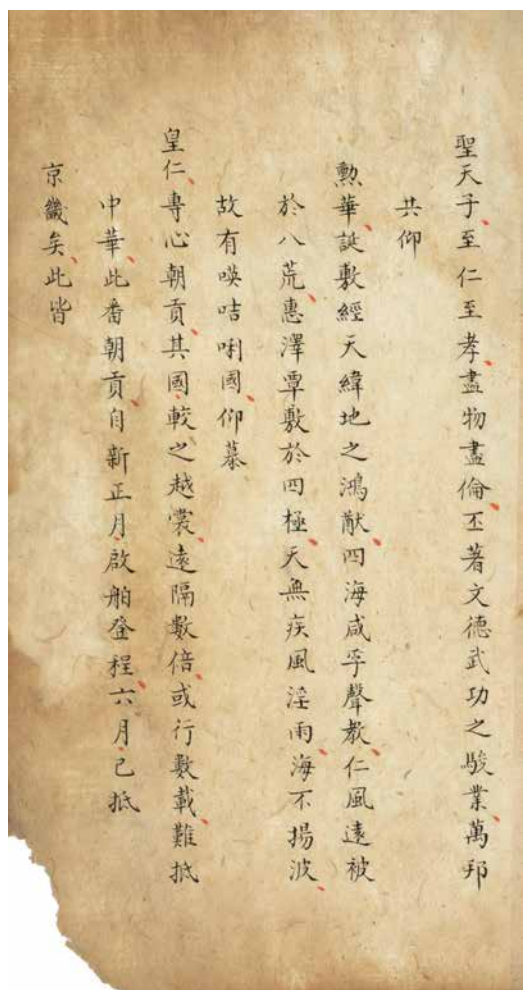 聖天子、至仁至孝、盡物盡倫、丕著文德武功之駿業、萬邦
共仰
勲華、誕敷經天緯地之鴻猷、四海咸孚聲教、仁風遠被
於八荒、惠澤覃敷於四極、天無疾風淫雨、海不揚波、
故有㗲咭唎國、仰慕
皇仁、專心朝貢、其國較之越裳、遠隔數倍、或行數載、難抵
中華、此畨朝貢、自新正月啟舶登程、六月己抵
京畿矣、此皆